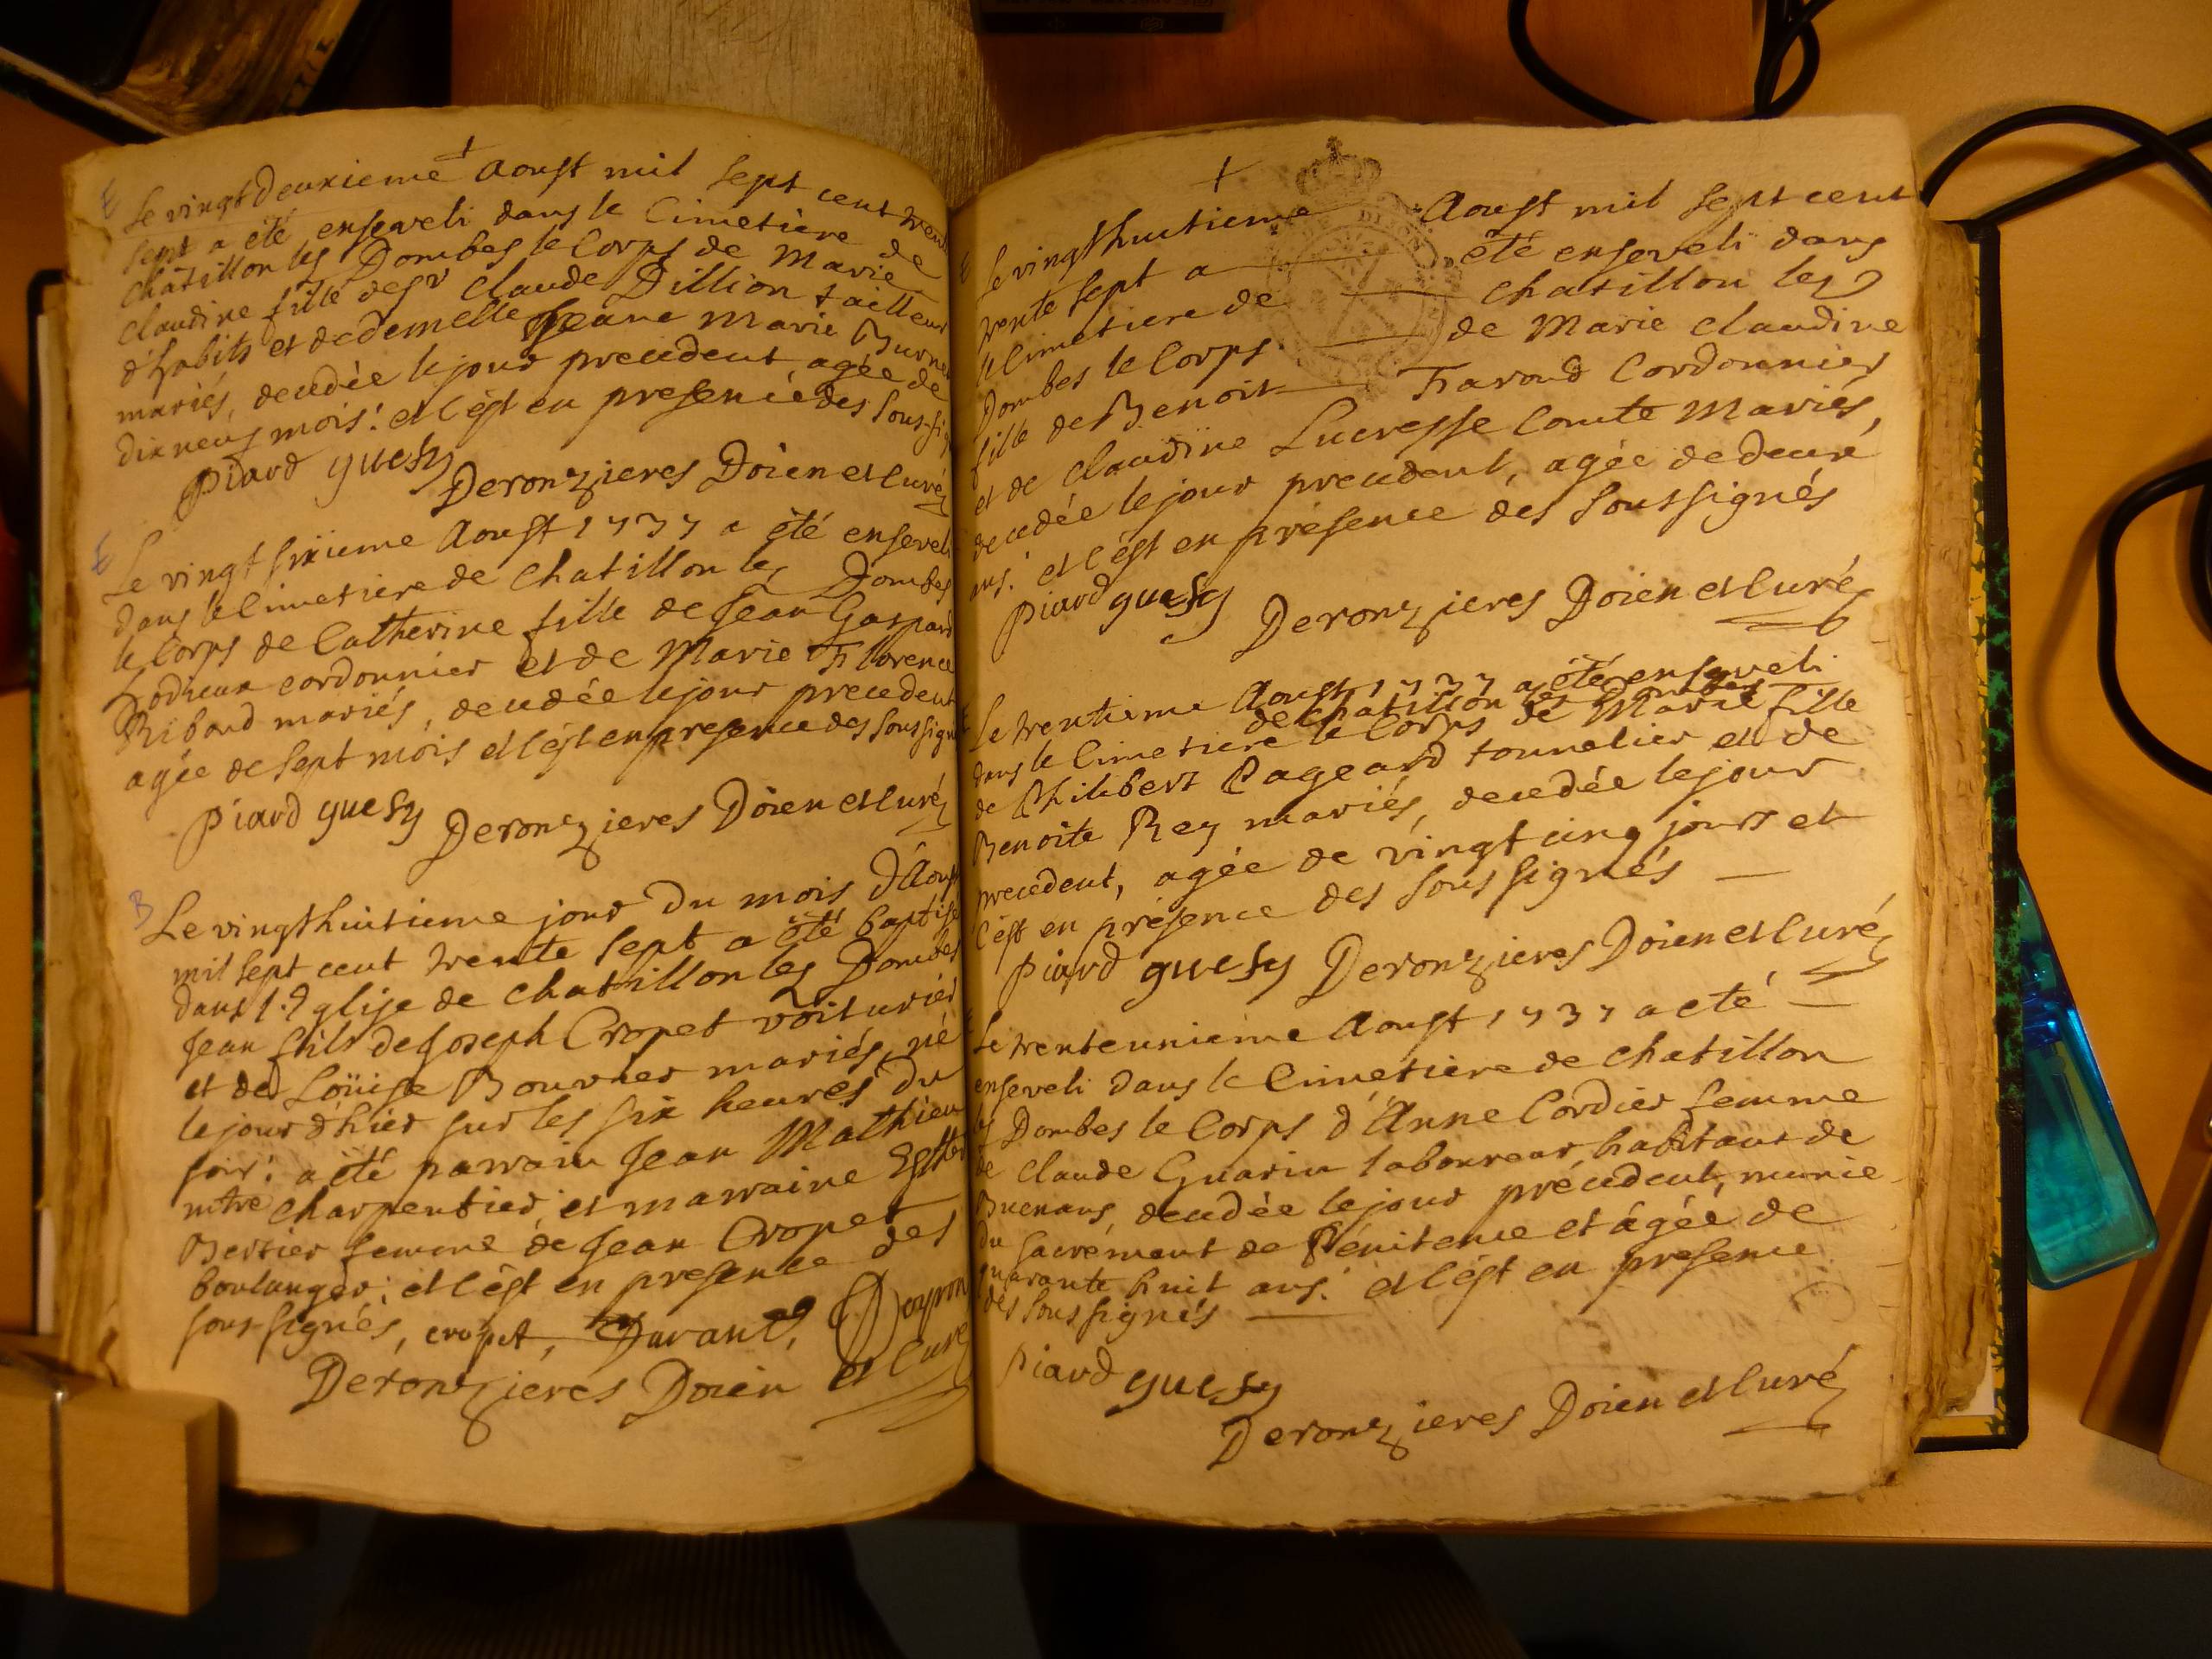 Le vingt deuxieme Aoust mil sept cent trente
sept a été enseveli dans le Cimetiere de
Châtillon les Dombes le Corps de Marie
Claudine fille de Sr Claude Dillion tailleur
d'habits et de demelle Jeane Marie Burnet
mariés, decedée le jour precedent agée de
dix neuf mois: et c'est en presence des sous-sig
Piard guesy
Deronzieres Doïen et Curé
Le vingt sixieme Aoust 1737 a été enseveli
dans le Cimetiere de Chatillon les Dombes
le Corps de Catherine fille de Jean Gaspard
cordonnier et de Marie Florence
Riboud mariés, decedée le jour precedent
agée de sept mois et c'est en presence des soussignés
Piard guesy Deronzieres Doïen et Curé
B
Le vingt huitieme jour du mois d'Aoust
mil sept cent trente sept a été baptisé
dans l'Eglise de Chatillon les Dombes
Jean fils de Joseph Cropet voiturier
et de Loüise Bouvier mariés, né
le jour d'hier sur les six heures du
soir: a été parrain Jean Mathieu
mtre charpentier, et marraine Esther
Bertier femme de Jean Cropet
boulanger; et c'est en presence des
sous-signés, cropet, Durand,
Deronzieres Doïen et Curé
Le vingt huitieme Aoust mil sept cent
trente sept a été enseveli dans
le Cimetiere de Chatillon les
Dombes le Corps de Marie Claudine
fille de Benoit Faroud Cordonnier
et de Claudine Lucresse Comte Mariés,
decedée le jour precedent, agée de deux
ans: et c'est en présence des soussignés
Piard guesy
Deronzieres Doïen et Curé
Le trentieme Aoust 1737 a été enseveli
de Chatillon les Dombes
dans le Cimetiere le Corps de Marie fille
de Philibert Pageard tonnelier et de
Benoite Rey mariés, decedée le jour
precedent, agée de vingt cinq jours et
c'est en présence des sous signés
Piard guesy Deronzieres Doïen et Curé
Le trente unieme Aoust 1737 a eté
enseveli dans le Cimetiere de Chatillon
les Dombes le Corps d'Anne Cordier femme
de Claude Guarin laboureur habitant de
Buenans, decedée le jour précedent, munie
du sacrément de Pénitence et âgée de
quarante huit ans: et c'est en presence
des sous signés
Piard guesy
Deronzieres Doïen et Curé